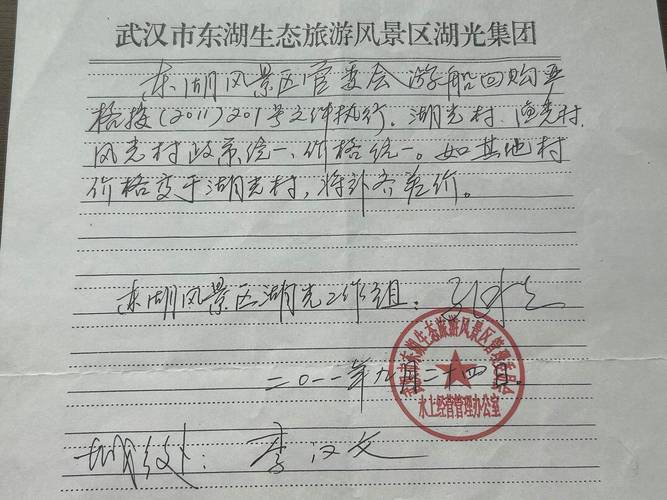 武汉市东湖生态旅游风景区湖光集团
东湖风景区管委会游船回购严
格按(2011)201号文件执行。湖光村、渔光村、
风光村政策统一、价格统一。如其他村
价格变于湖光村,将补齐差价。
东湖风景区湖光工作组:
二〇一一年九月二十四日。
水上经营管理办公室
李汉文